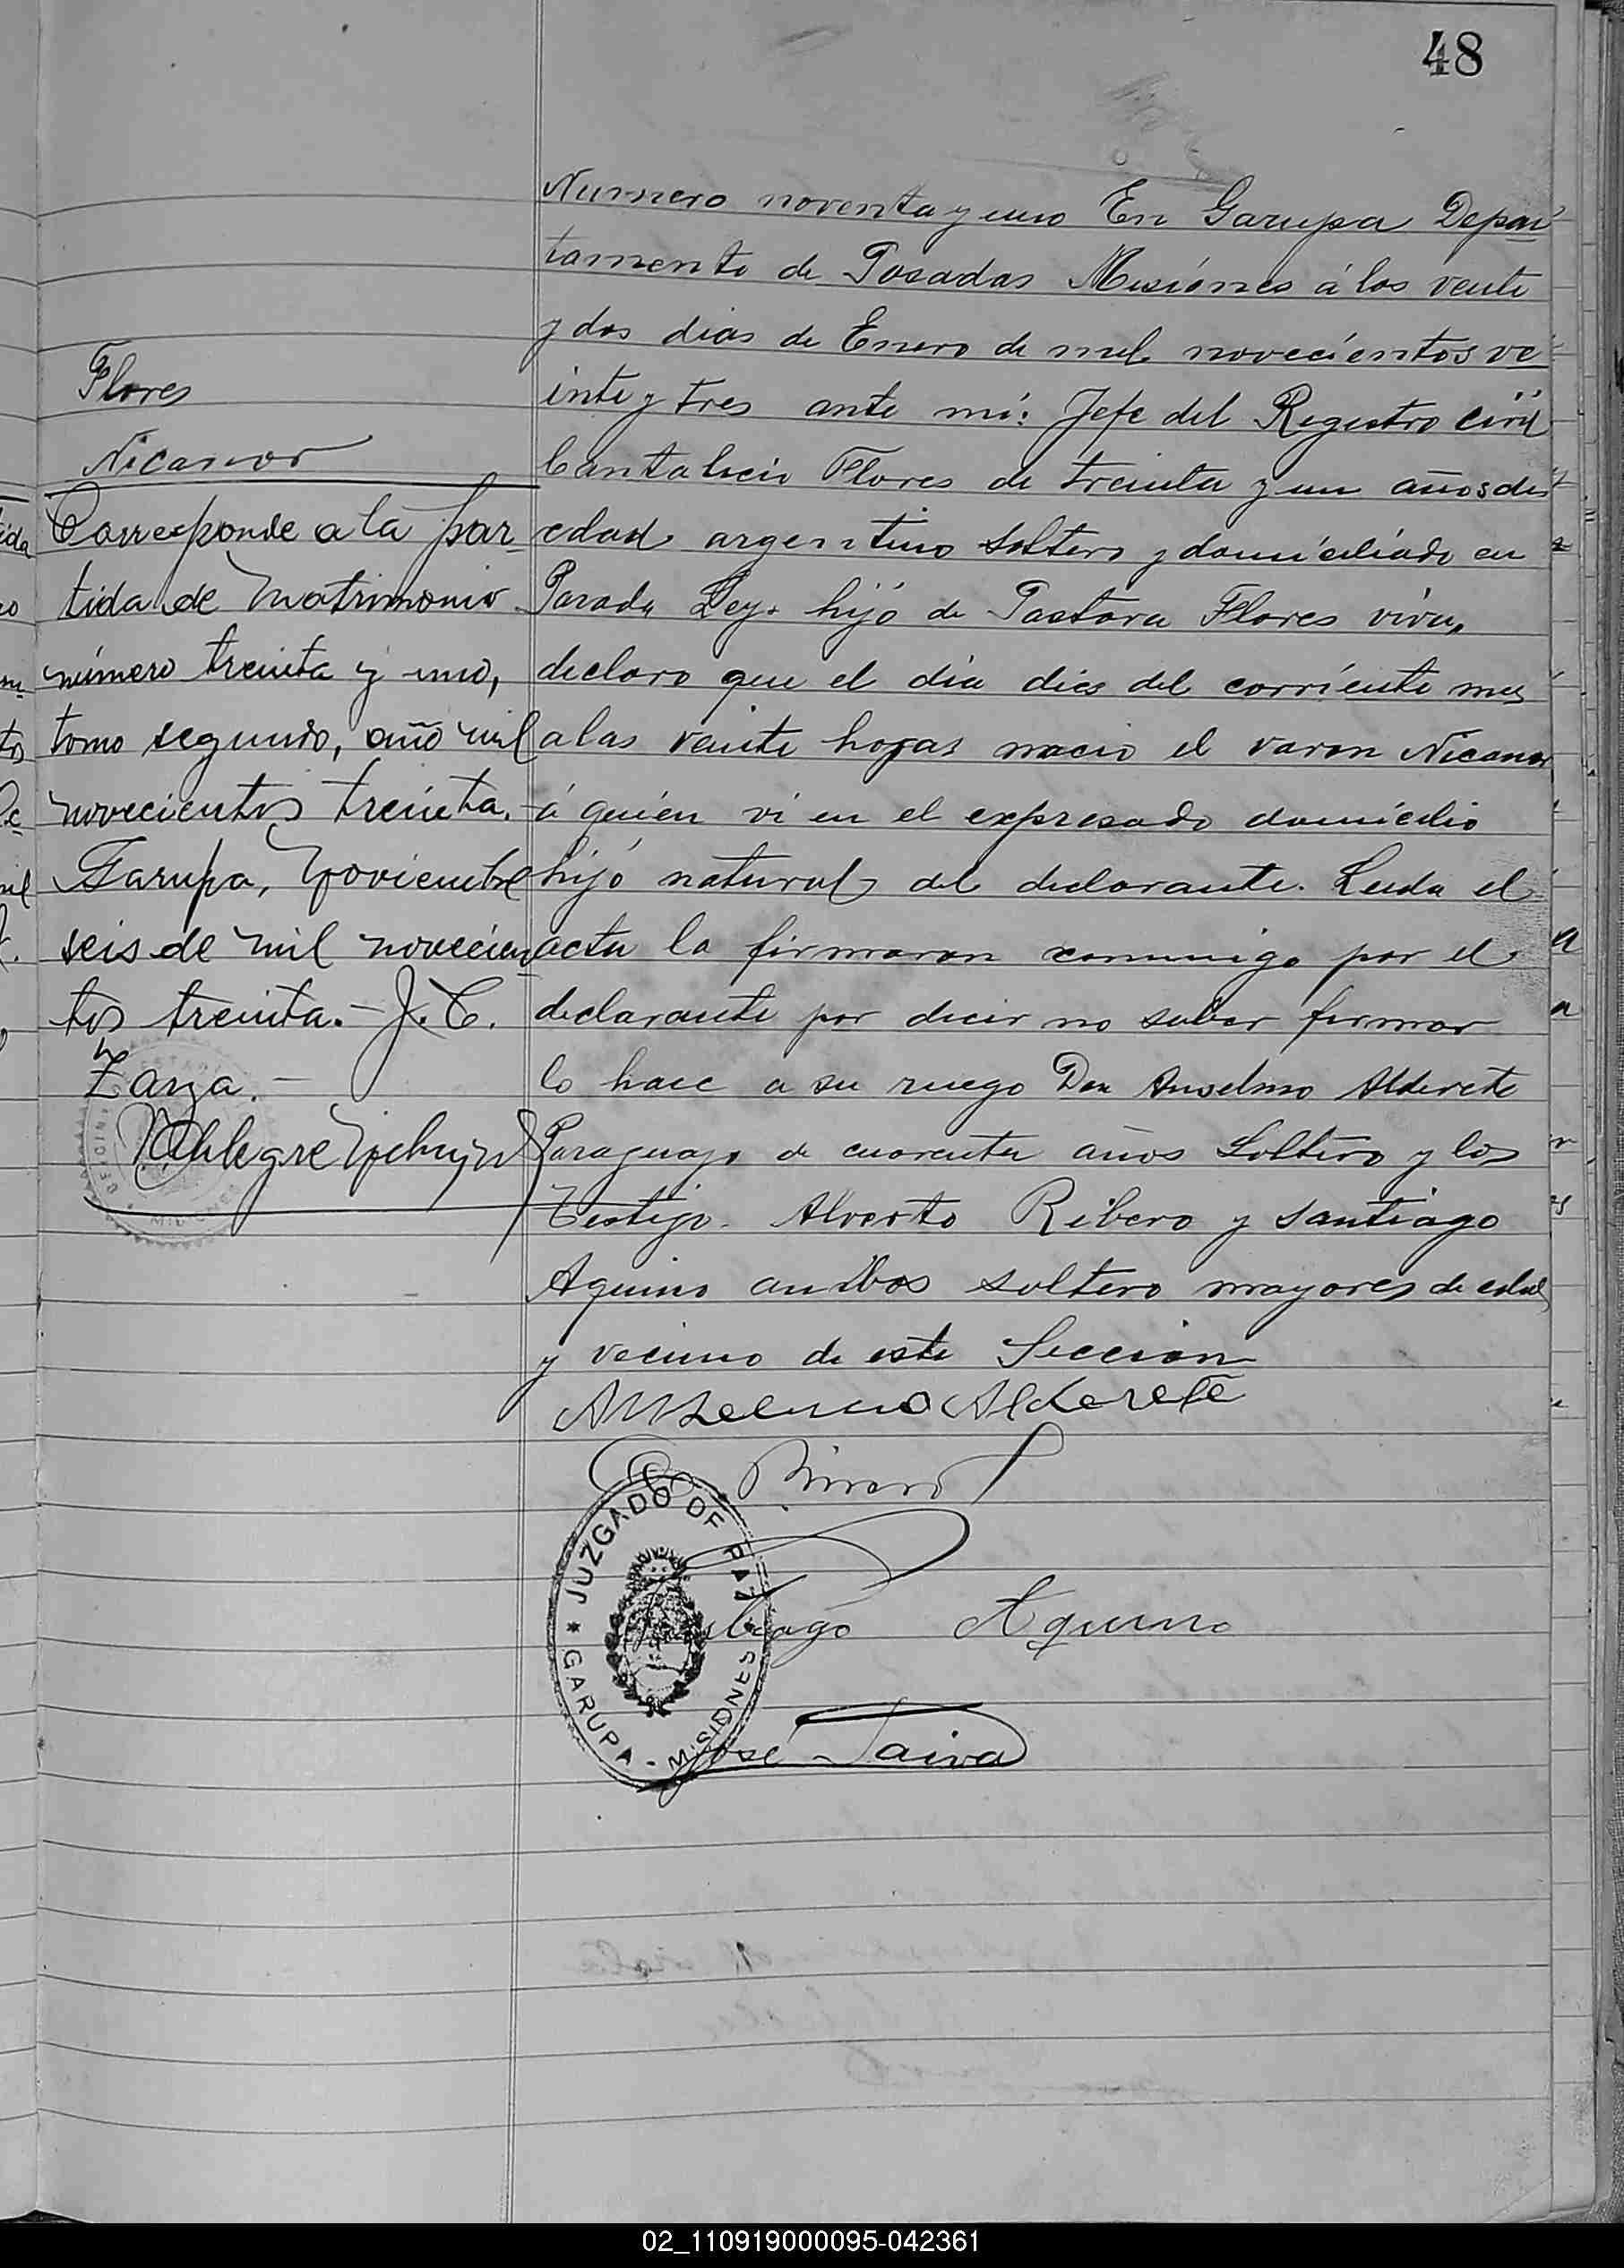 48
Flores
Nicanor
Corresponde a la par-
tida de matrimonio
número treinta y uno,
tomo segundo, año mil
novecientos treinta.
Garupa, Noviembre
seis de mil novecien
tos treinta.- J. C.
Zarza.-
Numero noventa y uno En Garupa Depar
tamento de Posadas Misiónes á los veuti
y dos dias de Enero de mil novecientos ve
inte y tres ante mi: Jefe del Registro civil
Cantalicio Flores de treinta y un años de
edad argentino soltero y domiciliado en
Parada Ley. hijó de Pastora Flores viva,
declaro que el dia dies del corriente mes
a las veinte horas nacio el varon Nicanor
á quién vi en el expresado domicilio
hijó natural del declarante. Leida el
acta la firmaron conmigo por el
declarante por decir no saber firmar
lo hace a su ruego Don Anselmo Alderete
Paraguayo de cuarenta años Soltero y los
Testigo. Alverto Ribero y Santiago
Aquino ambos soltero mayores de edad
y vecino de este Seccion
Anselmo Alderete
Santiago Aquino
JUZGADO DE PAZ
GARUPA - MISIONES
José Paiva
02_110919000095-042361